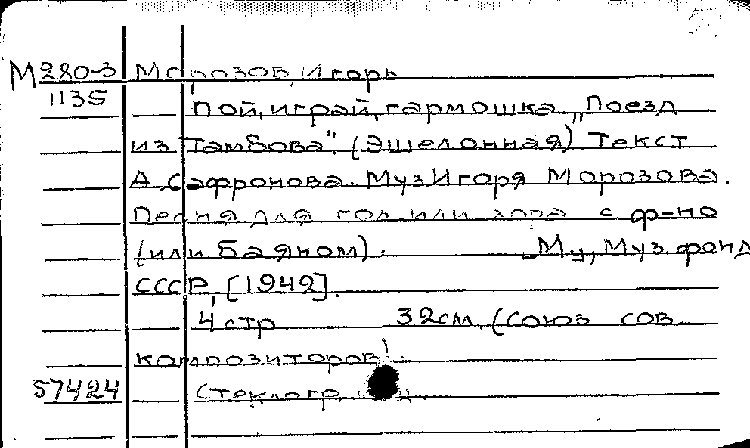 М280-3 Морозов, Игорь
1135 Пой, играй, гармошка. „Поезд
из Тамбова". (Эшелонная) Текст
А. Сафронова. Муз Игоря Морозова.
Песня для гол или хора с ф-но
(или баяном). М, Муз. фонд
СССР, [1942].
4 стр 32см. (Союз сов
композиторов)
57424 Стеклогр.